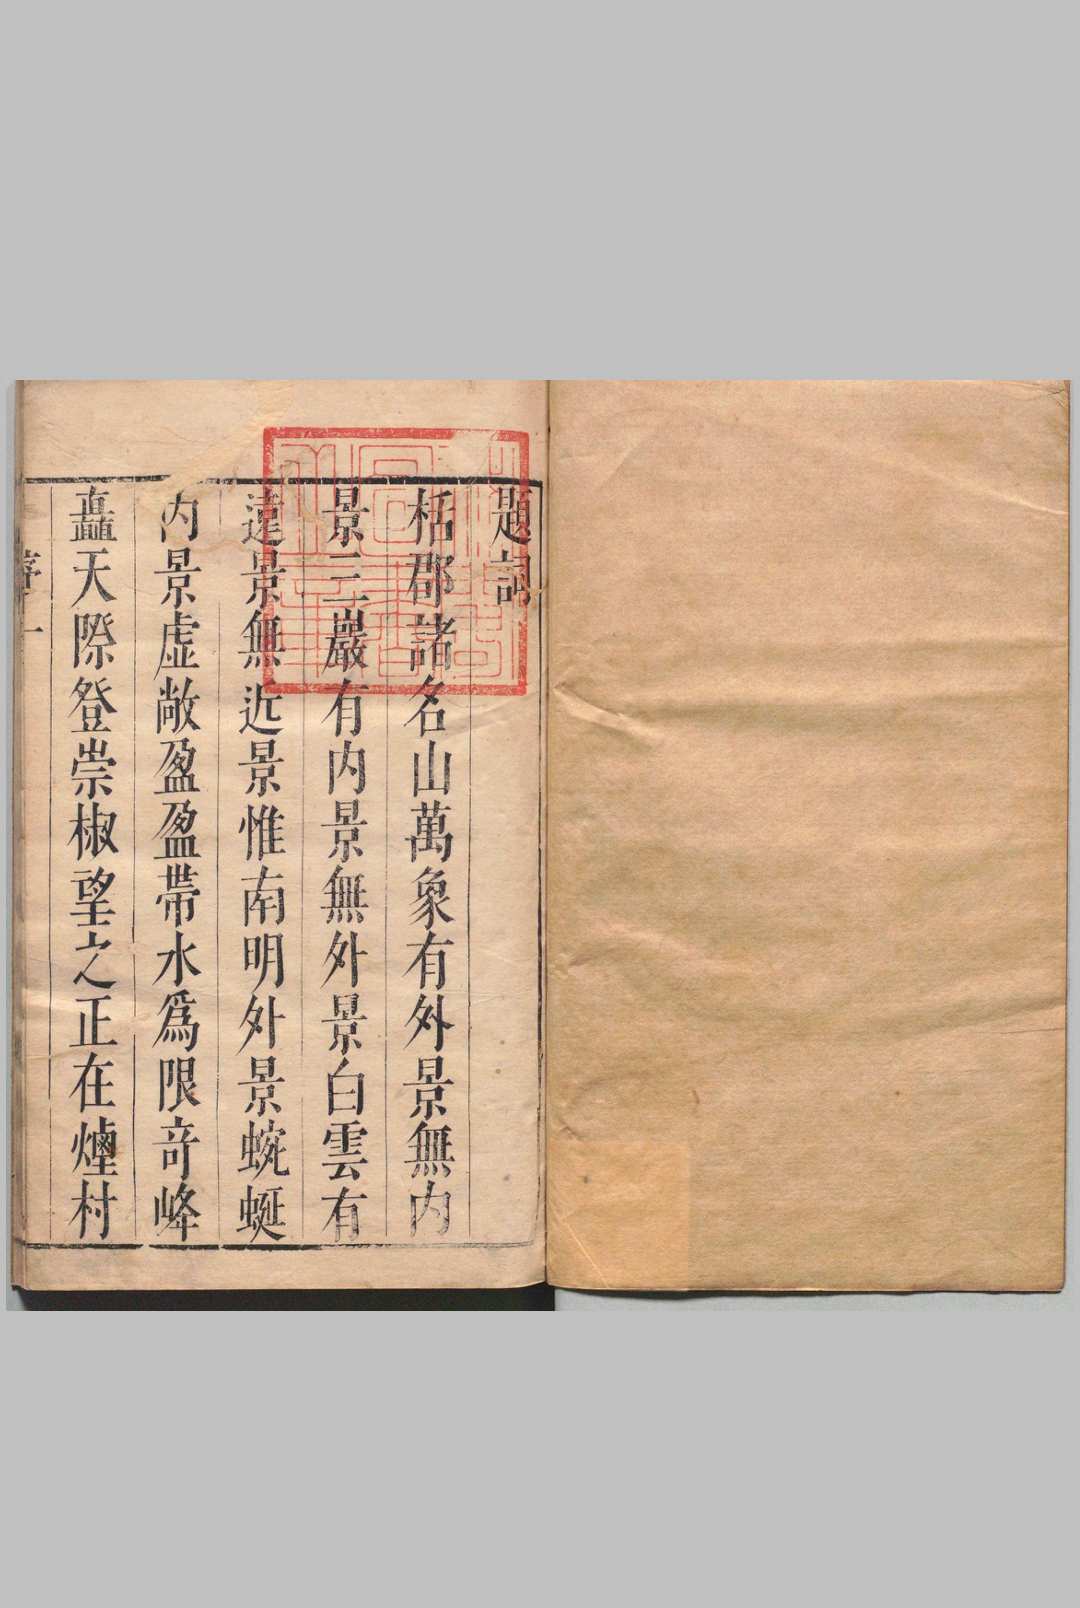 題詞
栝郡諸名山萬象有外景無内
景三巖有内景無外景白雲有
遠景無近景惟南明外景蜿蜒
内景虚敞盈盈帶水為限奇峰
矗天際登崇椒望之正在煙村
序 一